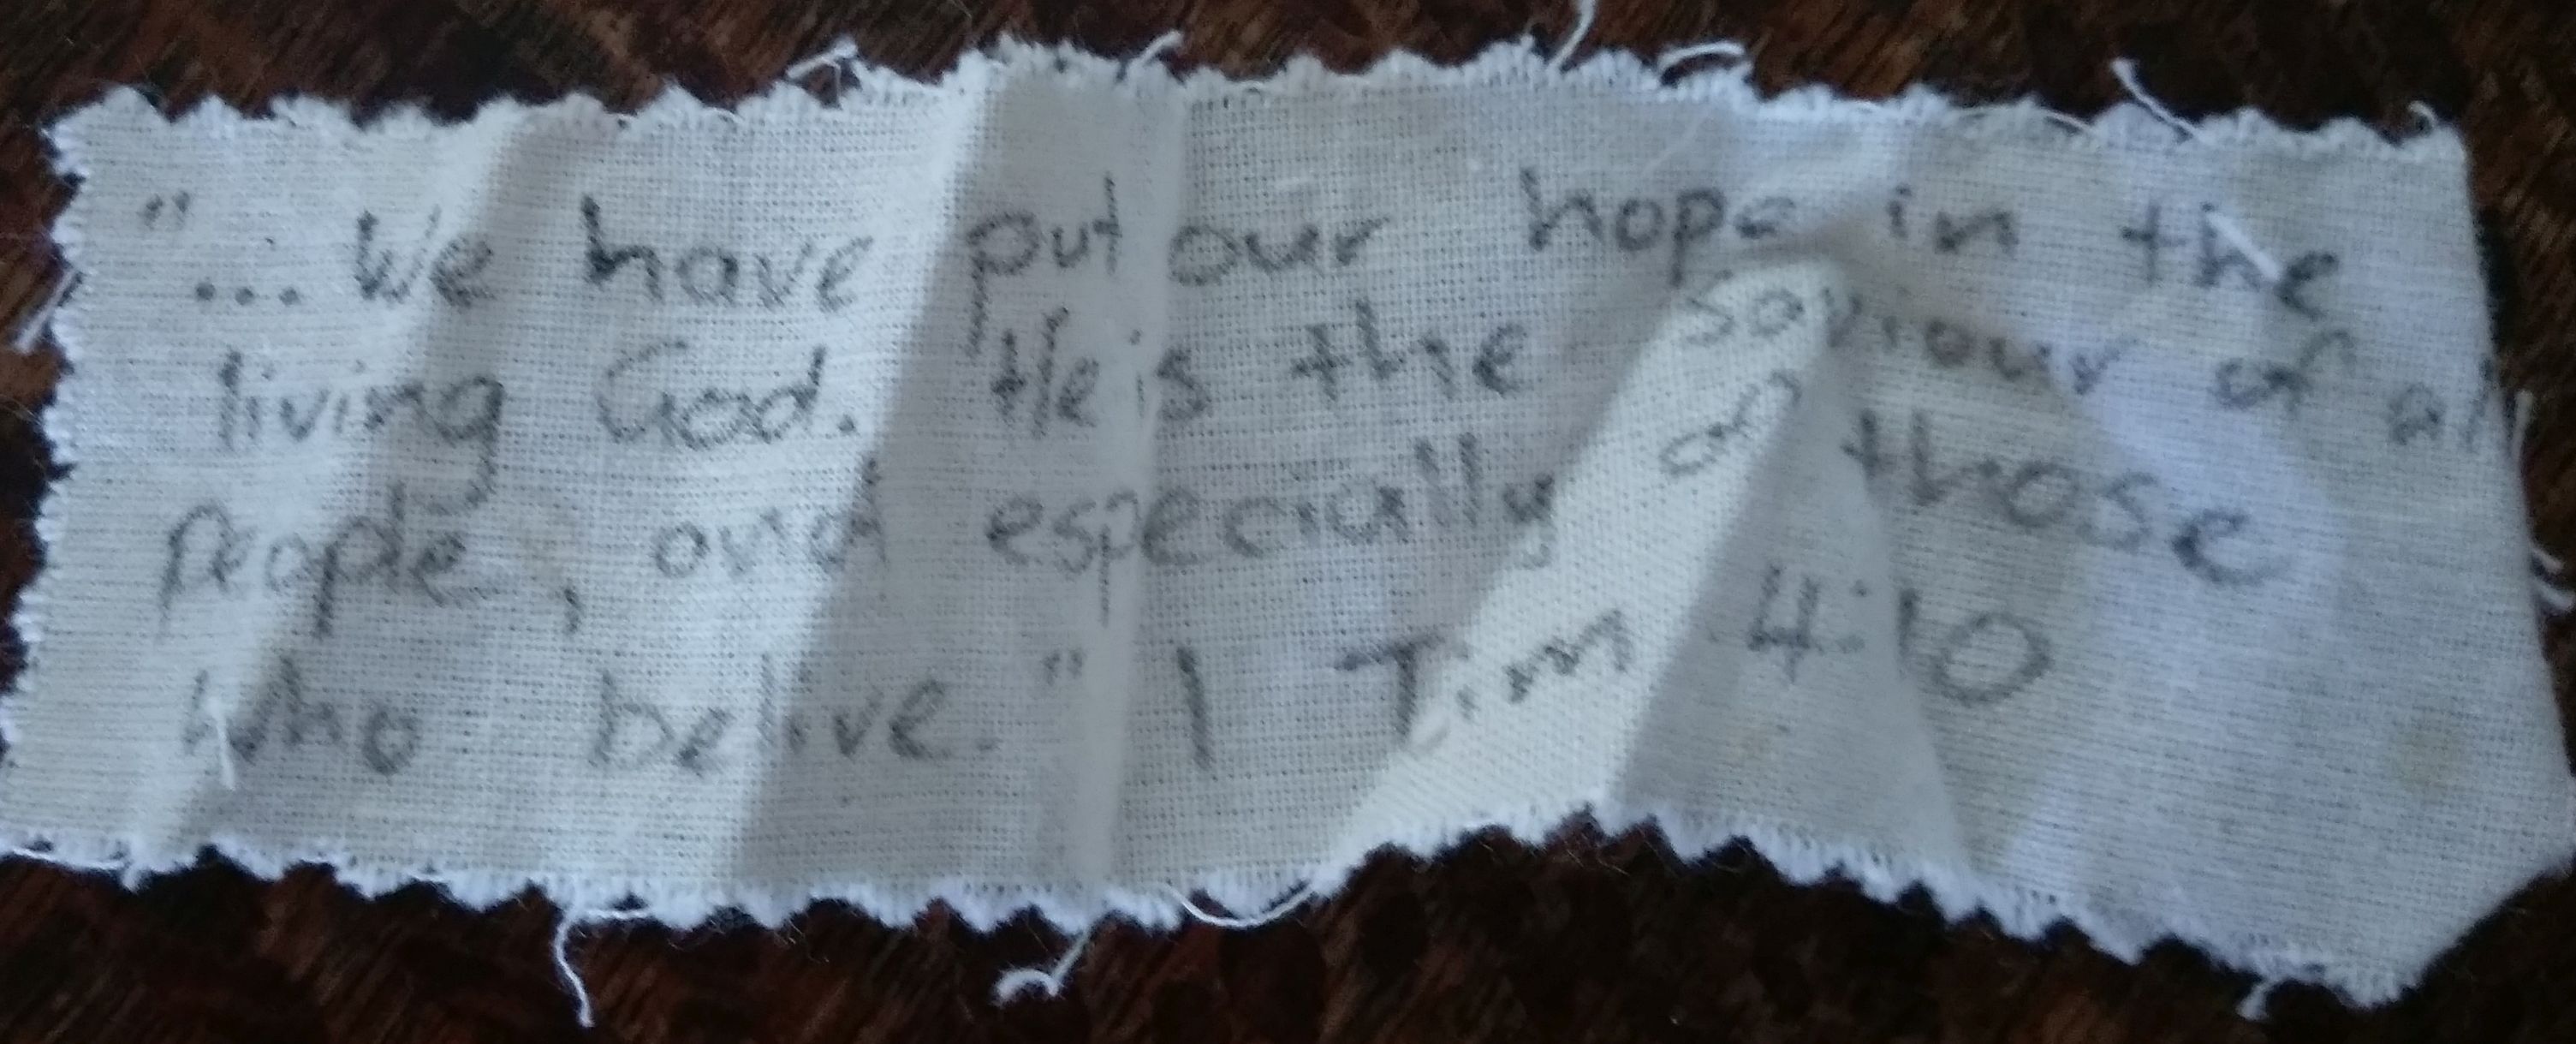 "...We have put our hope in the
living God. He is the Saviour of all
people, and especially of those
who belive." 1 Tim 4:10